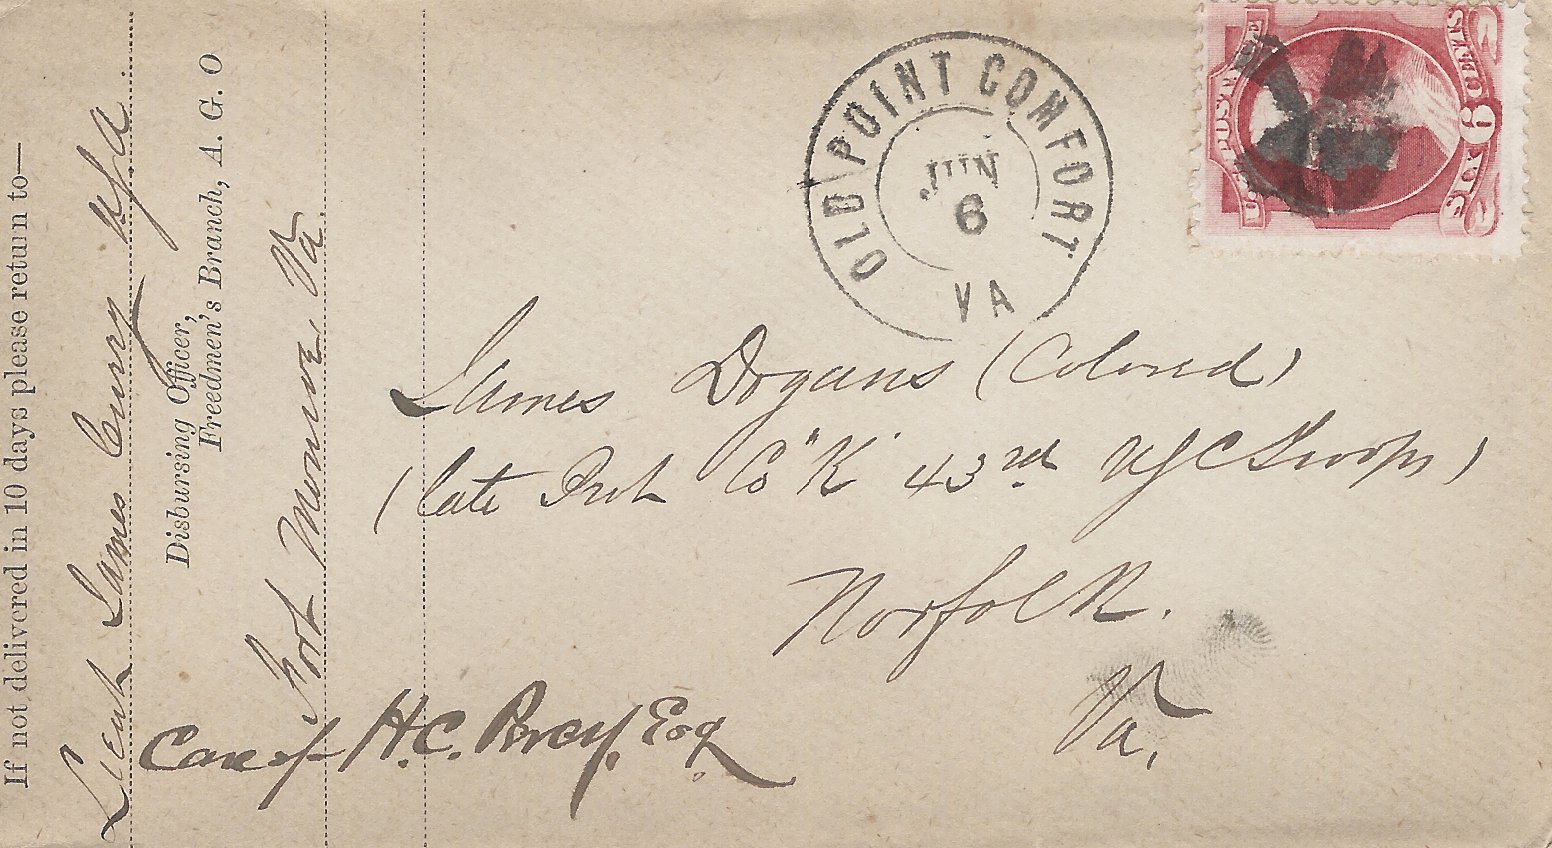 If not delivered in 10 days please return to—
Lieut James Curry USA
Disbursing Officer,
Freedmen's Branch, A. G. O
Fort Monroe, Va.
OLD POINT COMFORT
JUN
6
VA
U.S. POSTAGE
SIX 6 CENTS
James Dogans (Colored)
(late Pvt Co "K" 43rd USC Troops)
Norfolk.
Va.
Care of H.C. Percy, Esq